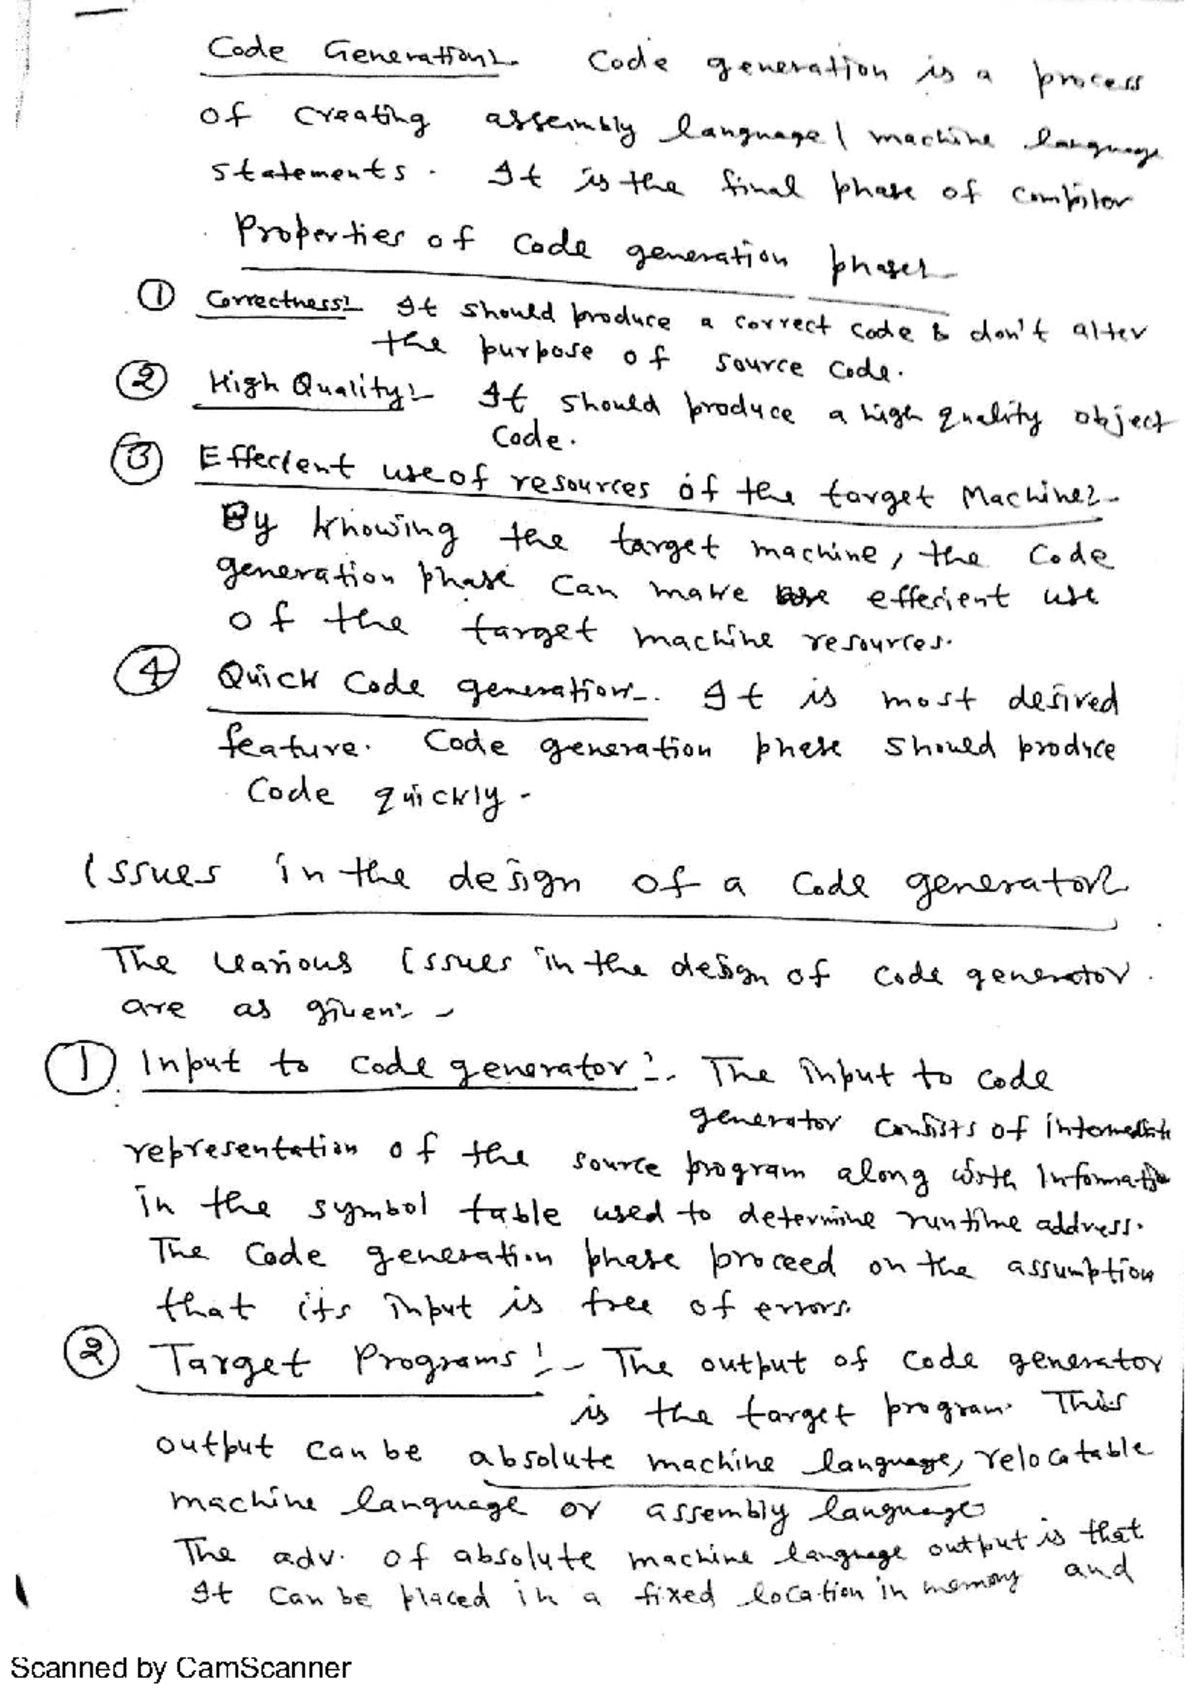 Code Generation:- Code generation is a process
of creating assembly language / machine language
statements. It is the final phase of compiler
Properties of code generation phase:-
① Correctness:- It should produce a correct code & don't alter
the purpose of source code.
② High Quality:- It should produce a high quality object
code.
③ Effecient use of resources of the target Machine:-
By knowing the target machine, the code
generation phase can make effecient use
of the target machine resources.
④ Quick Code generation:- It is most desired
feature. Code generation phase should produce
code quickly.
Issues in the design of a code generator:-
The various issues in the design of code generator
are as given:-
① Input to code generator:- The input to code
generator consists of intermediate
representation of the source program along with Information
in the symbol table used to determine runtime address.
The code generation phase proceed on the assumption
that its input is free of errors.
② Target Programs:- The output of code generator
is the target program. This
output can be absolute machine language, relocatable
machine language or assembly language
The adv. of absolute machine language output is that
It can be placed in a fixed location in memory and
Scanned by CamScanner